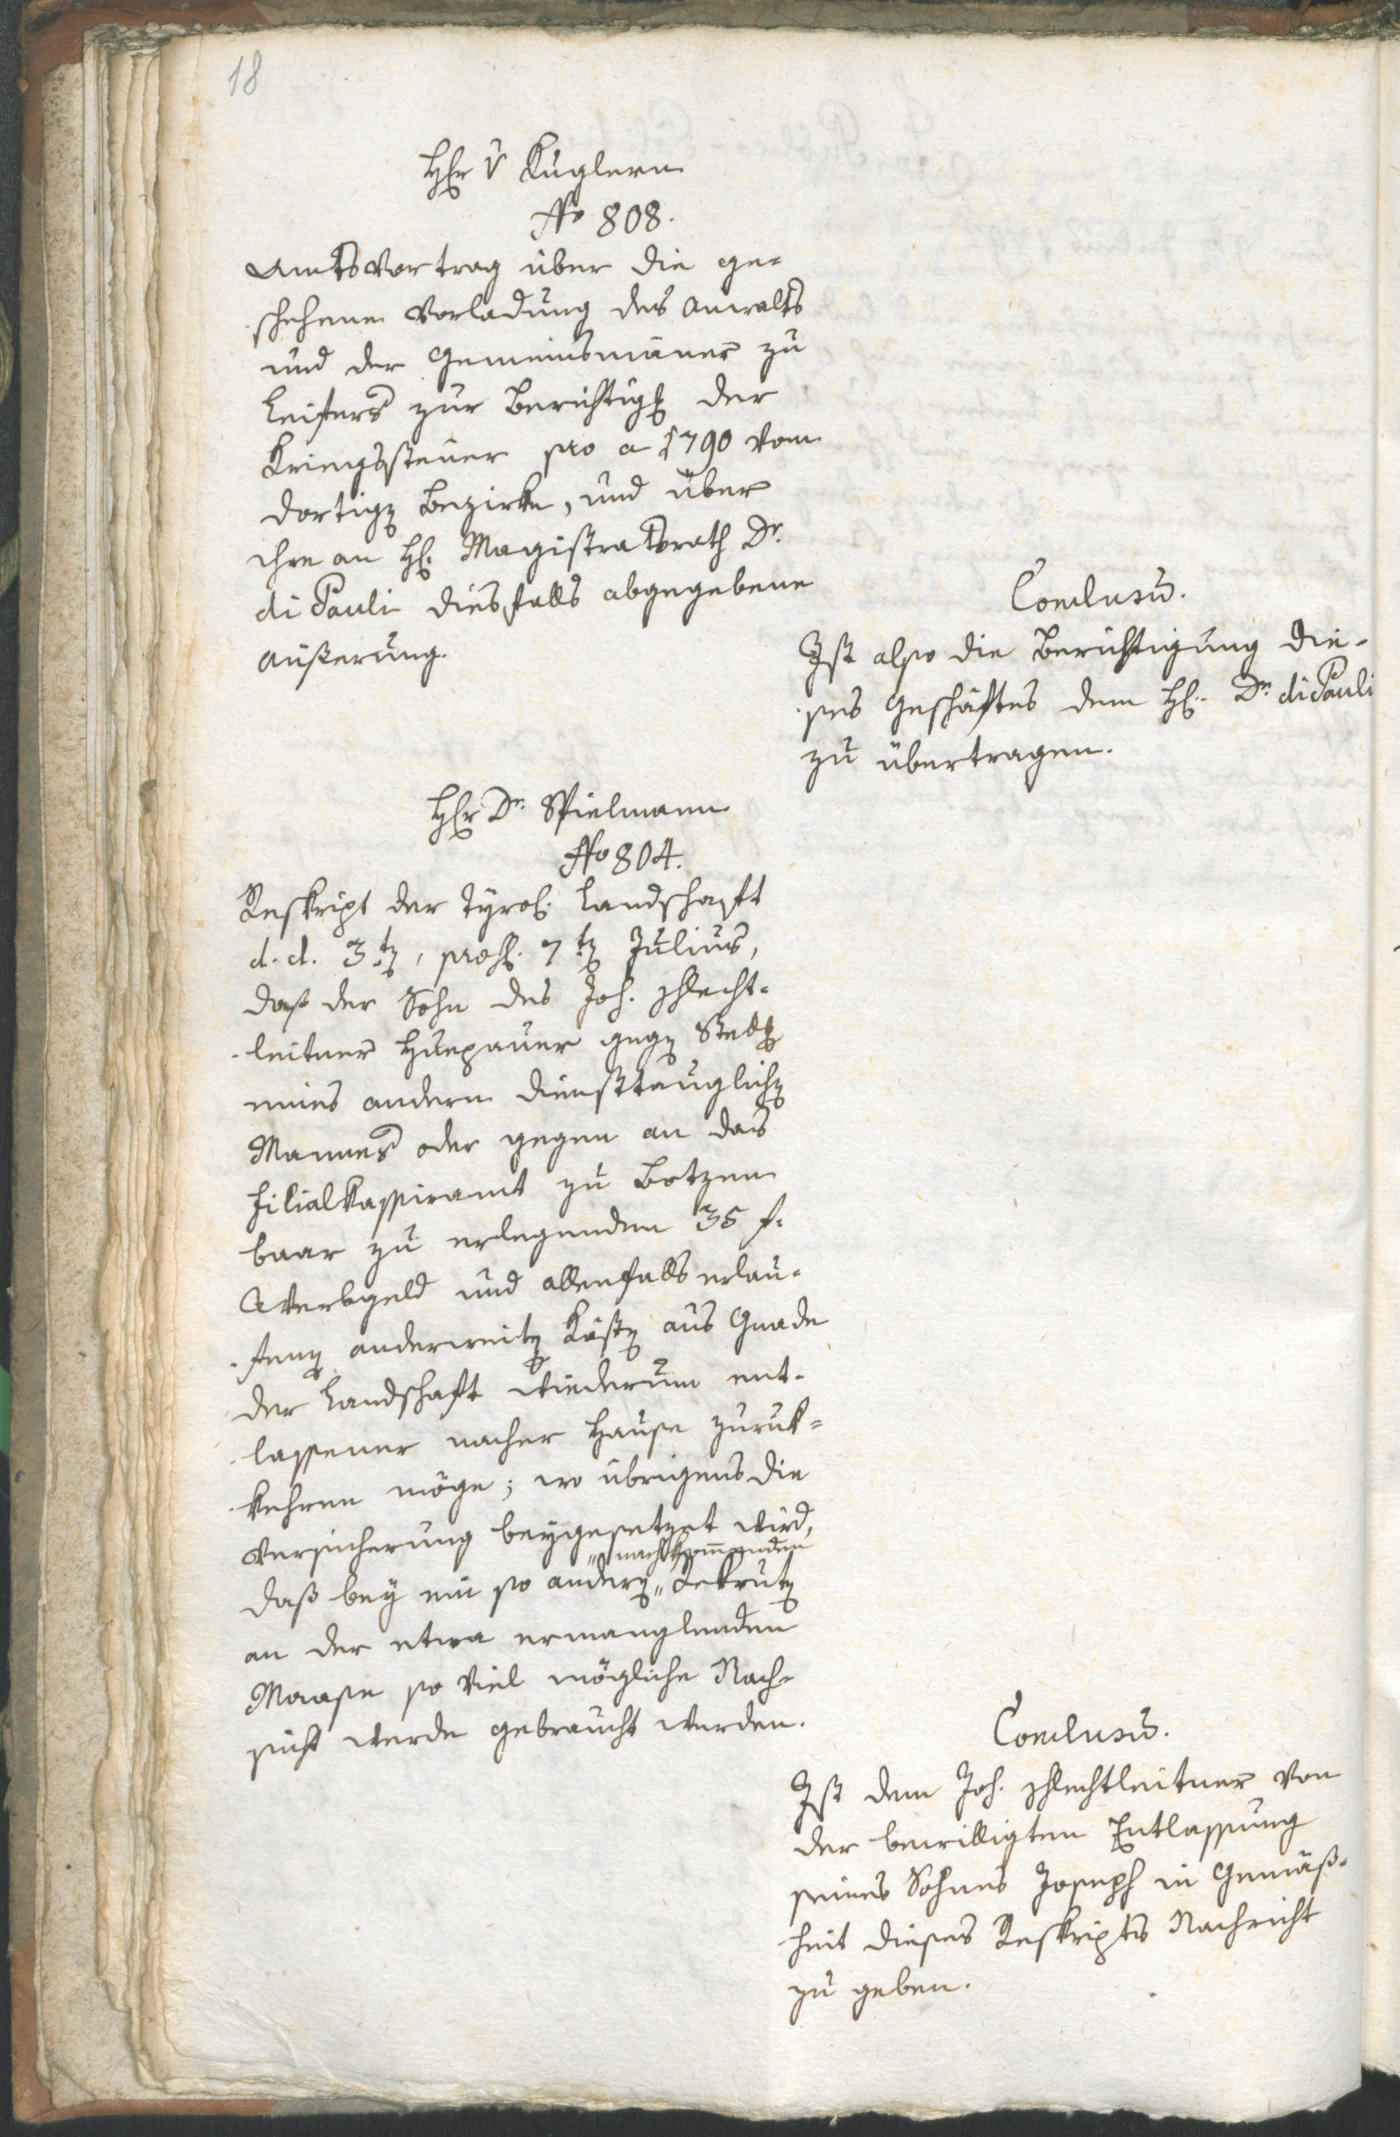 18
Hr v Kuglern
No 808.
Amtsvortrag über die ge-
schehene Vorladung des Anwalts
und der Gemeinsmäner zu
Leifers zur Berichtigg der
Kriegssteuer pro a 1790 vom
dortigen Bezirke, und über
ihre an H. Magistratsrath Dr.
di Pauli diesfalls abgegebene
Äußerung.
Conclusū.
Ist also die Berichtigung die-
ses Geschäftes dem H. Dr. di Pauli
zu übertragen.
Hr Dr. Spielmann
No 804.
Reskript der Tyrol. Landschaft
d. d. 3ten, praes. 7ten Julius,
daß der Sohn des Joh. Schlecht-
leitner gegen Stellg
eines andern diensttauglichen
Mannes oder gegen an das
Filialkassieramt zu Botzen
baar zu erlegenden 35 f.
Werbgeld und allenfalls erlau-
fenen anderweiten Kösten aus Gnade
der Landschaft wiederum ent-
lassener nacher Hause zuruk-
kehren möge; wo übrigens die
Versicherung beygesetzet wird,
daß bey ein so andern " nachkommenden " Rekruten
an der etwa ermanglenden
Maase so viel mögliche Nach-
sicht werde gebraucht werden.
Conclusū.
Ist dem Joh. Schlechtleitner von
der bewilligten Entlassung
seines Sohnes Joseph in Gemäß-
heit dieses Reskripts Nachricht
zu geben.